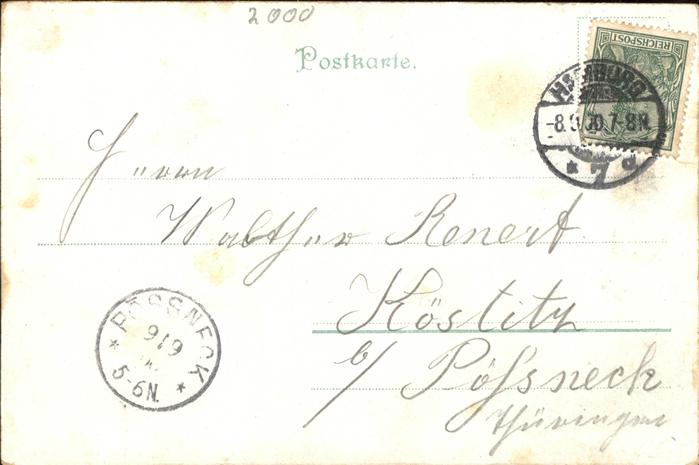 2000
Postkarte.
REICHSPOST
HAMBURG
-8.9.00.7-8N.
* 7 d
Herrn
Walther Renert
Köstitz
b/ Pößneck
Thüringen
PÖSSNECK
9/9
* 5-6N. *